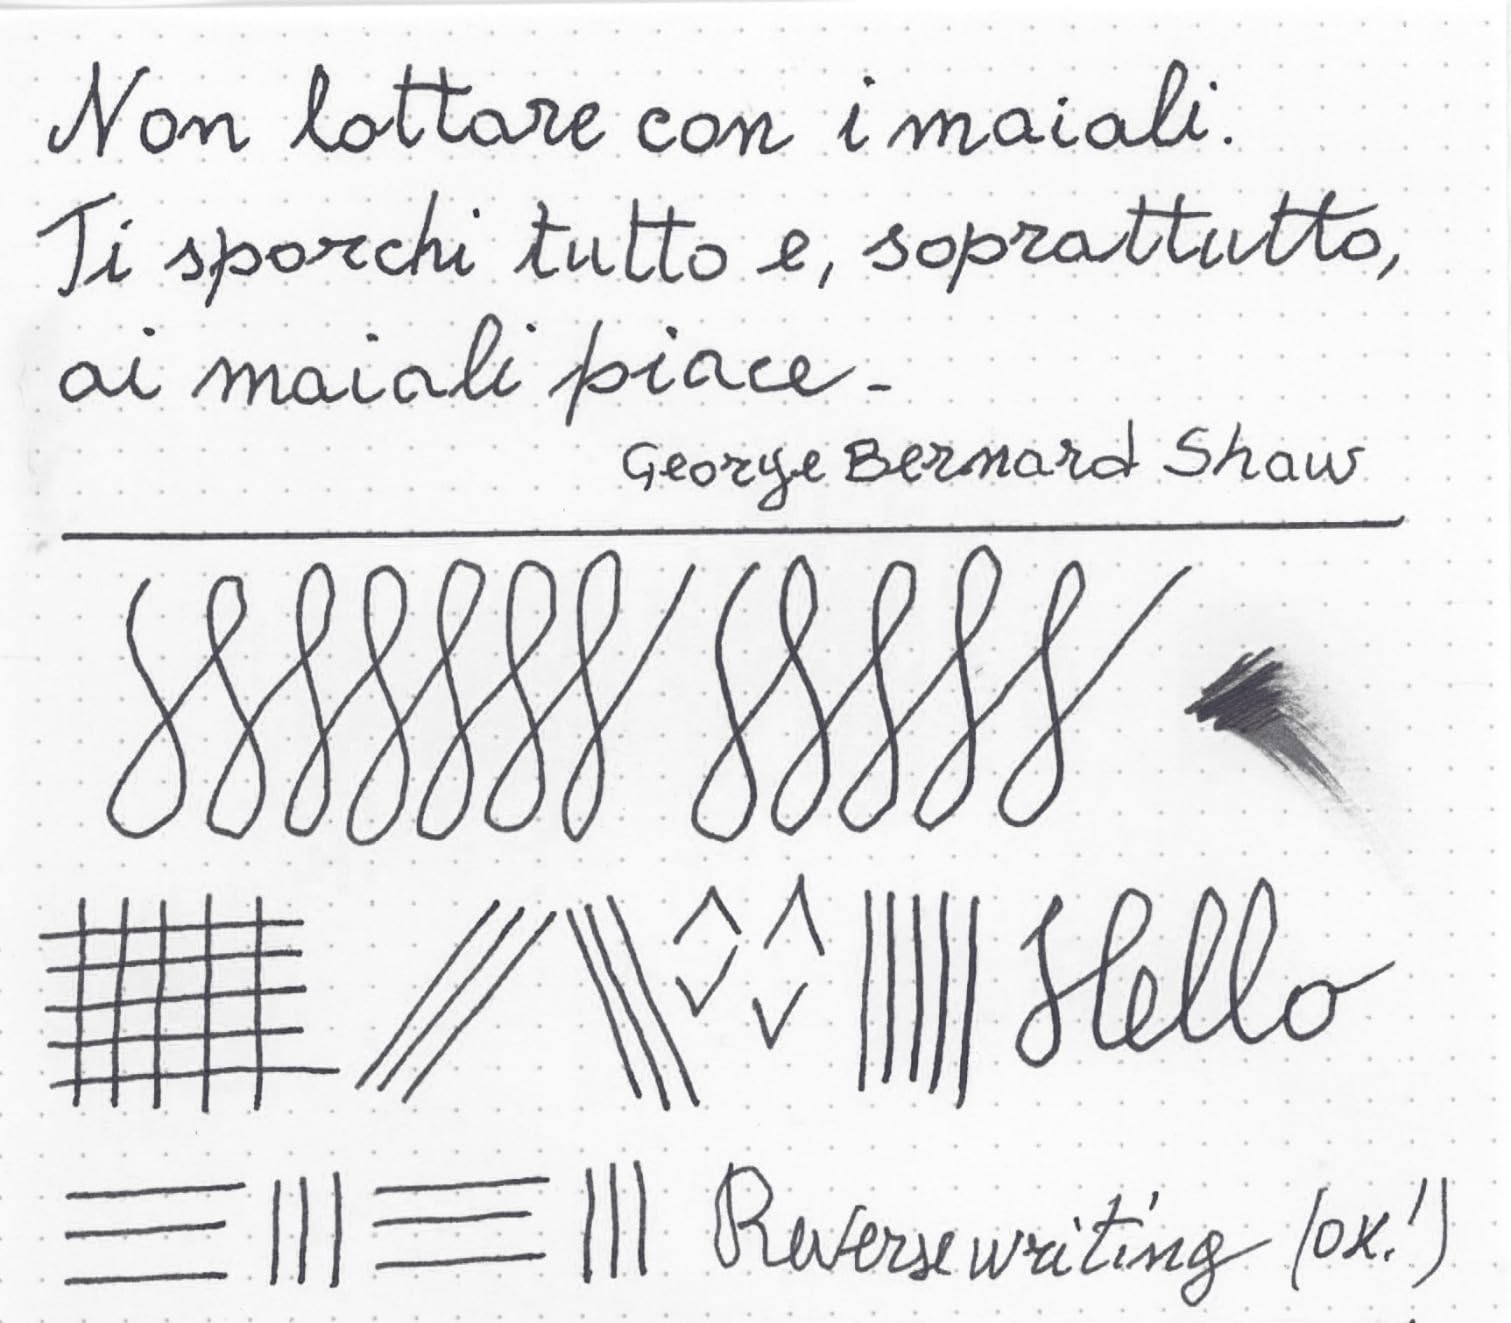 Non lottare con i maiali.
Ti sporchi tutto e, soprattutto,
ai maiali piace.
George Bernard Shaw
Hello
Reverse writing (ok!)